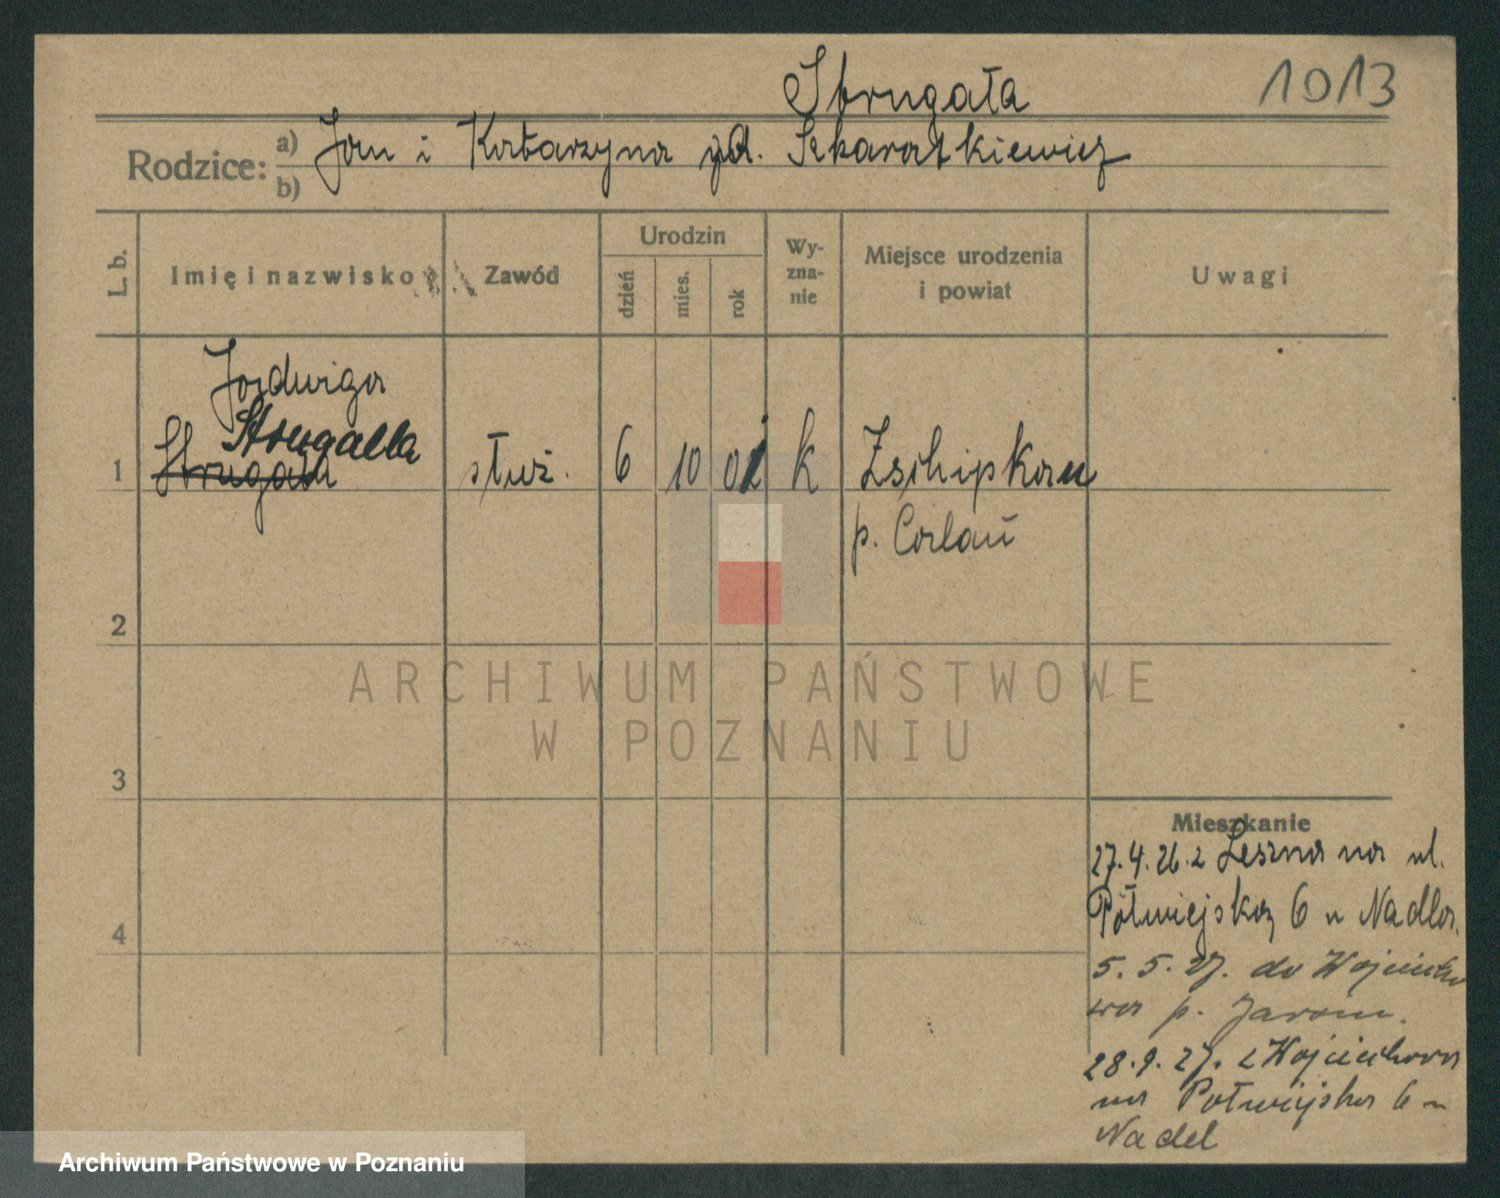 Strugała
1013
Rodzice: a) Jan i Katarzyna zd. Szkaratkiewicz
b)
L. b. Imię i nazwisko Zawód Urodzin dzień mies. rok Wyzna-nie Miejsce urodzenia i powiat Uwagi
Jadwiga
Strugalla
1 Strugała służ. 6 10 01 k Zschipkau
p. Corlau
2
ARCHIWUM PAŃSTWOWE
W POZNANIU
3
Mieszkanie
27.4.26. z Leszna na ul.
4 Półwiejską 6 u Nadla.
5.5.27. do Wojciecho
wa p. Jarocin.
28.9.27. z Wojciechowa
na Półwiejska 6 u
Nadel
Archiwum Państwowe w Poznaniu